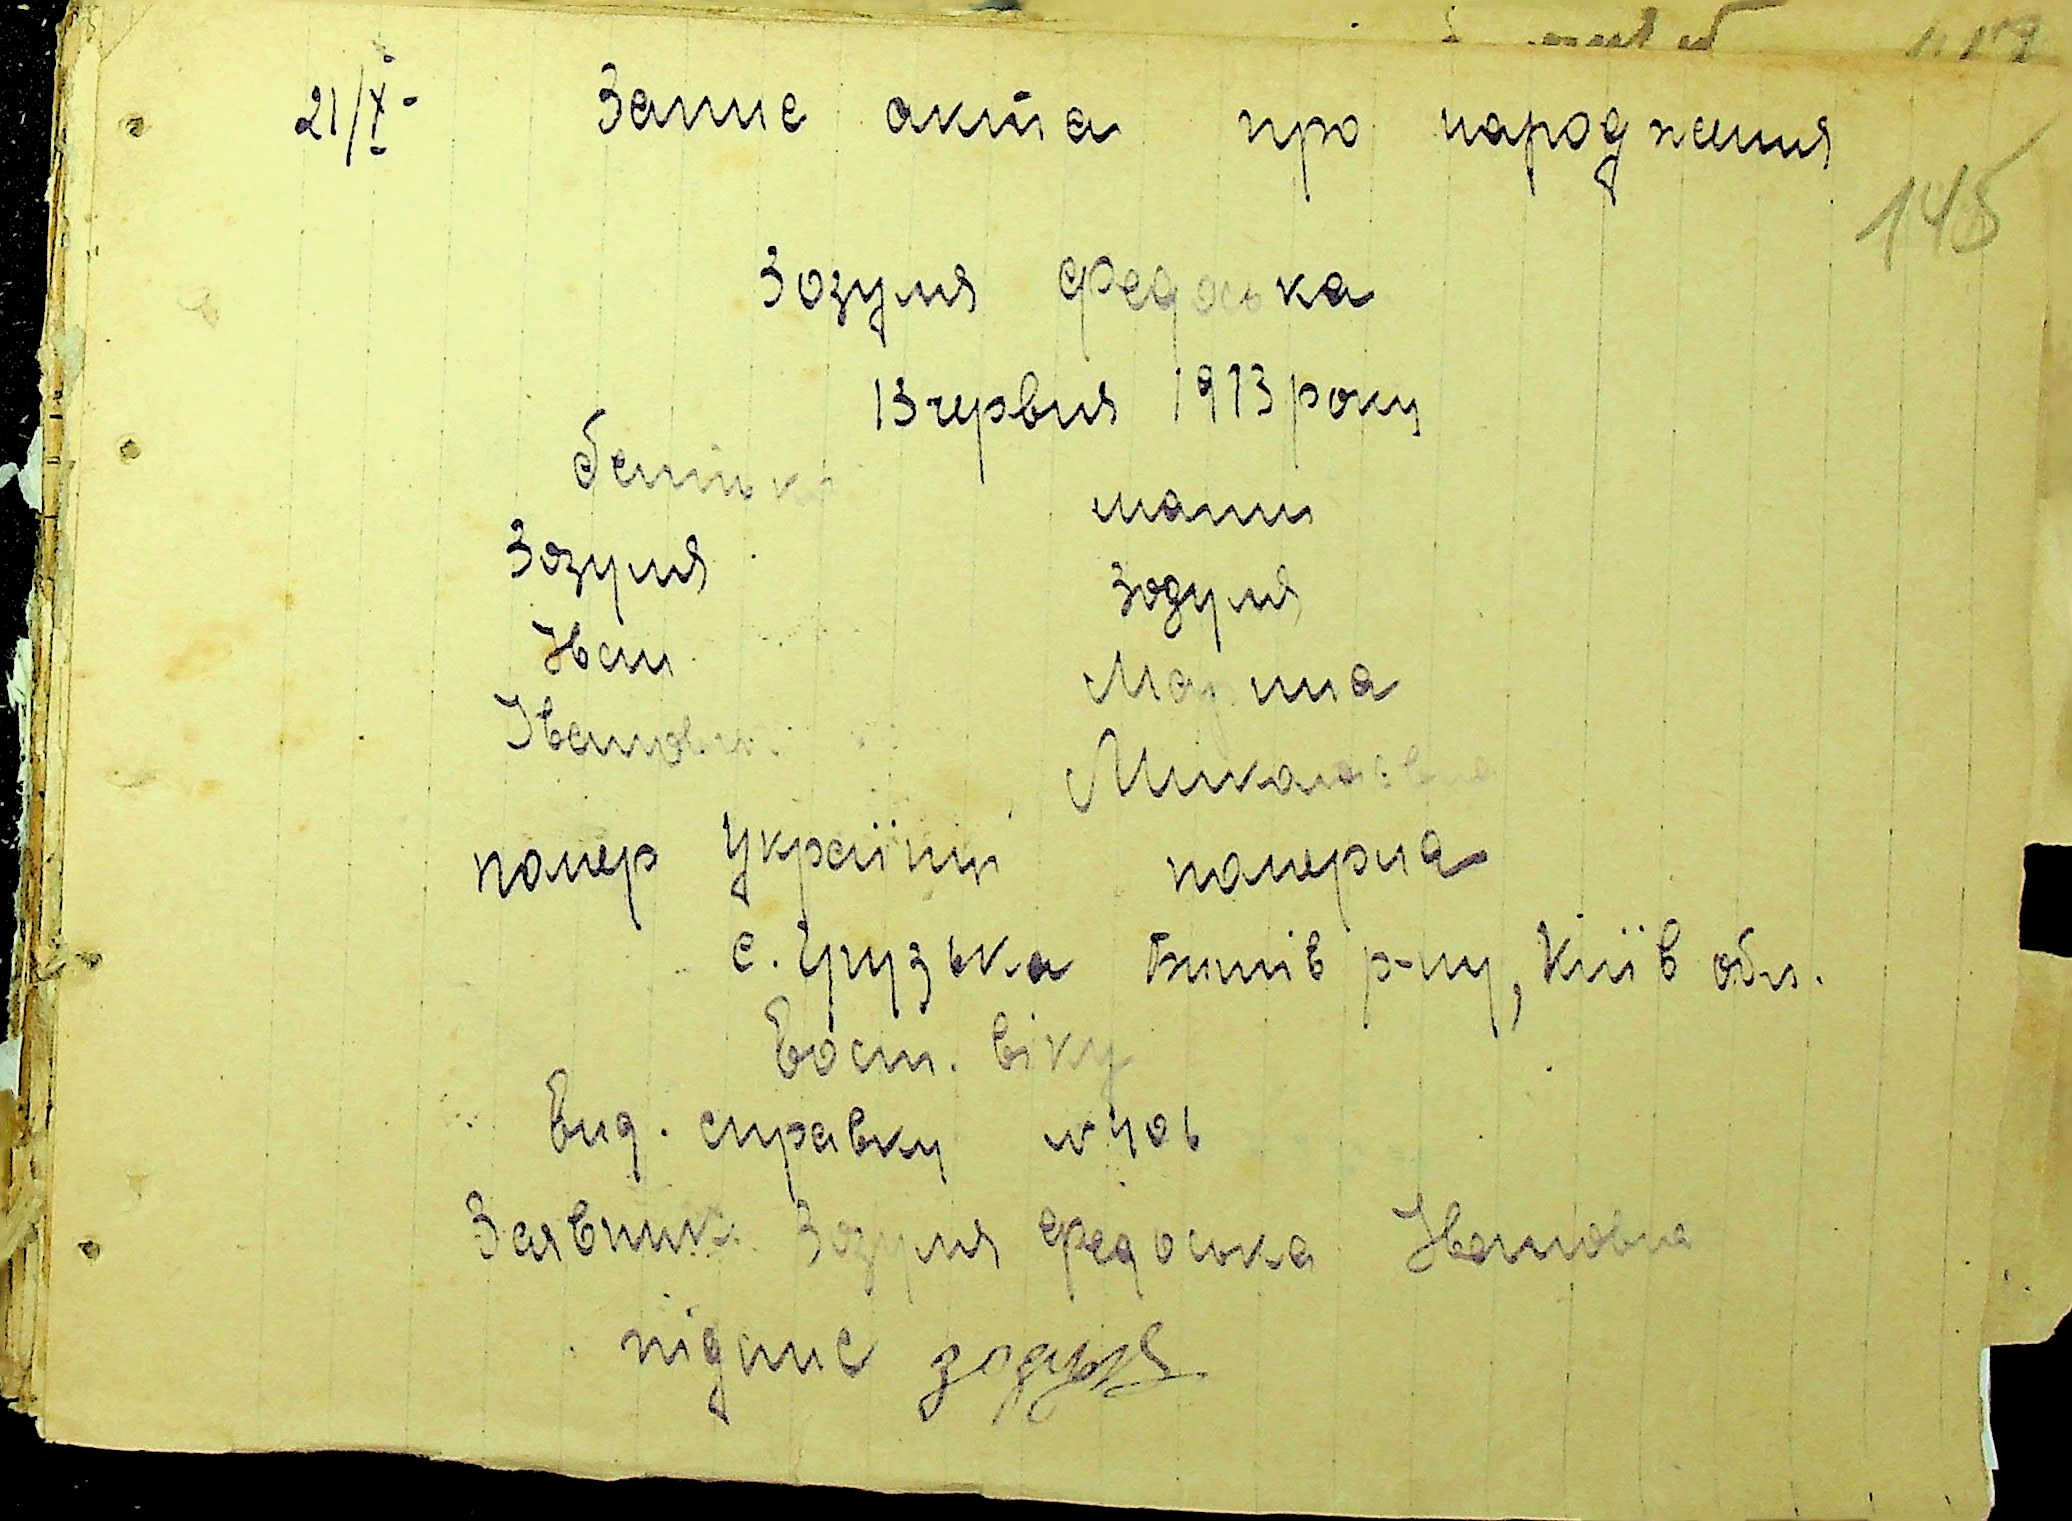 21/X- Запис акта про народження
145
Зозуля Федоська
13 червня 1913 року
батько мати
Зозуля Зозуля
Іван Марина
Іванович Миколаївна
помер Українці померла
с. Грузька Бишів р-ну, Київ обл.
Вост. віку
Вид. справку
Заявник Зозуля Федоська Івановна
підпис Зозуля